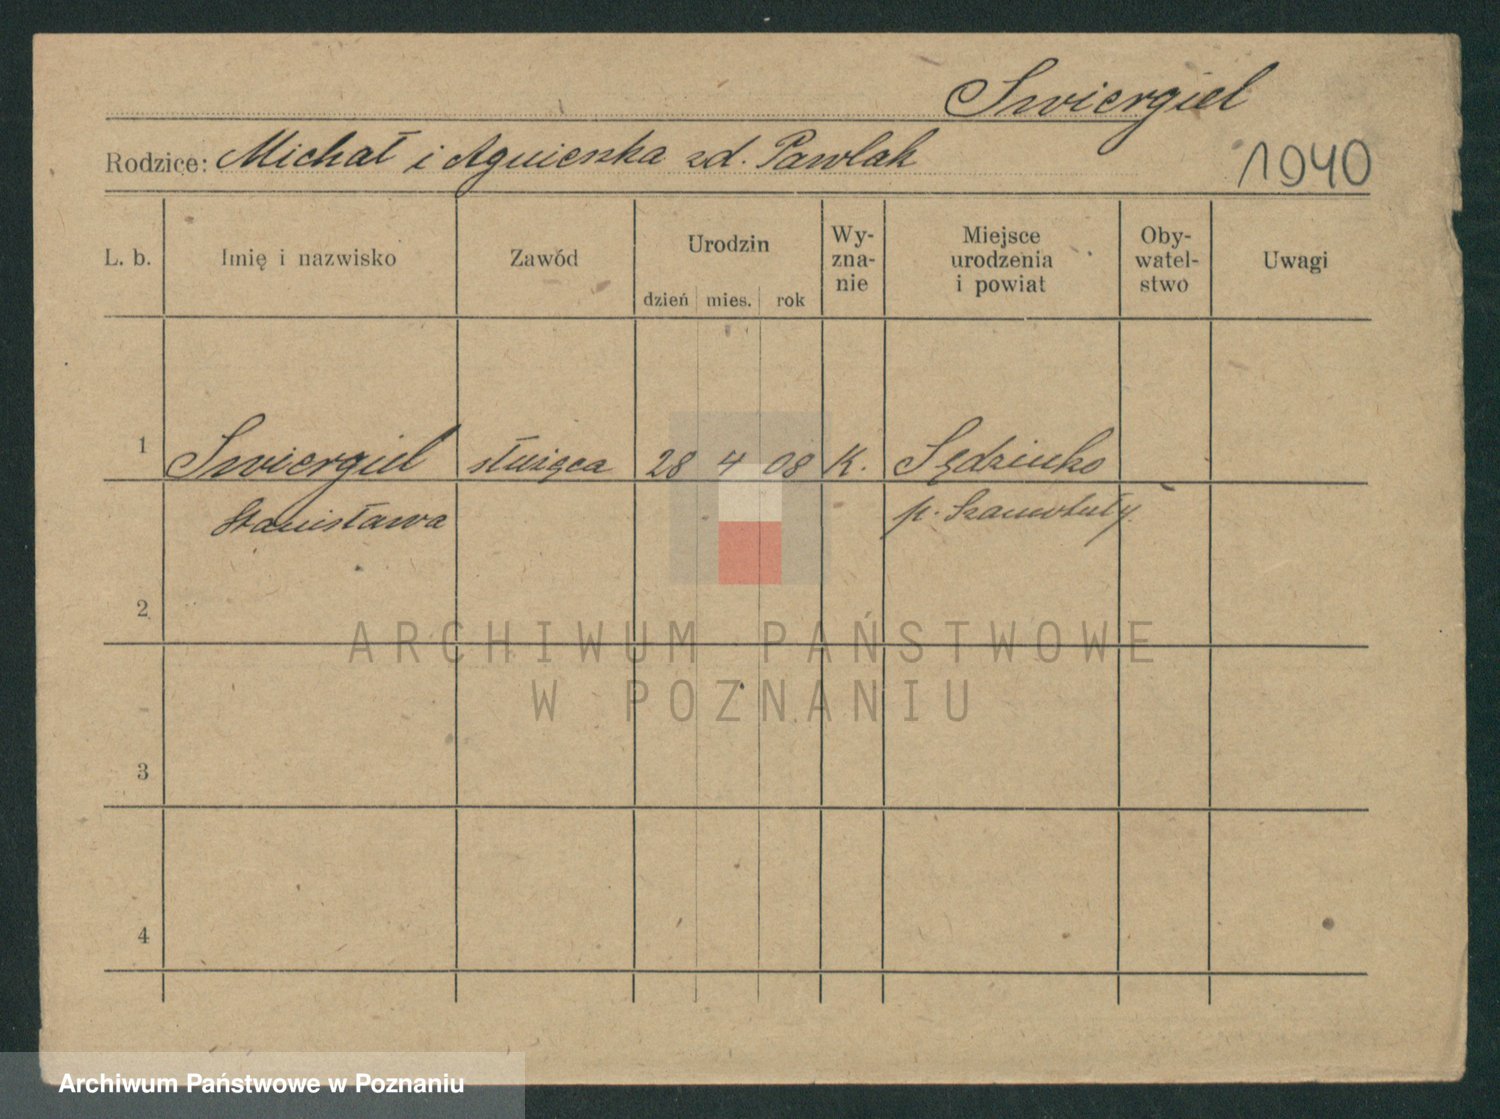 Swiergiel
Rodzice: Michał i Agnieszka zd. Pawlak
1940
L. b. Imię i nazwisko Zawód Urodzin dzień mies. rok Wy-zna-nie Miejsce urodzenia i powiat Oby-watel-stwo Uwagi
1 Swiergiel służąca 28 4 08 K. Sędzinko
Stanisława p. Szamotuły
2
ARCHIWUM PAŃSTWOWE
W POZNANIU
3
4
Archiwum Państwowe w Poznaniu